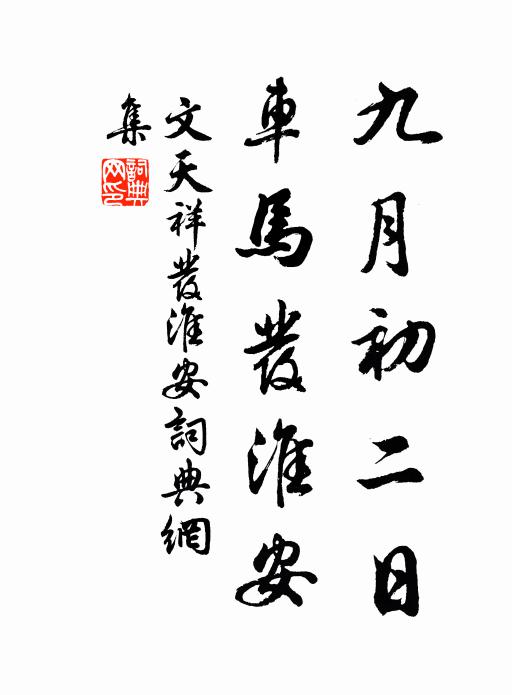 九月初二日
車馬發淮安
文天祥發淮安詞典網
集
詞典網印